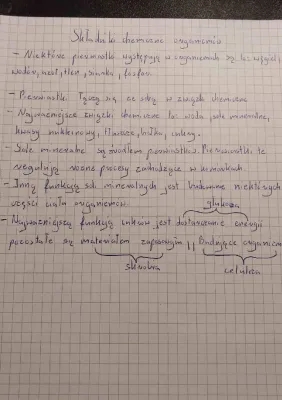 Składniki chemiczne organizmów
- Niektóre pierwiastki występują w organizmach są to: węgiel,
wodór, azot, tlen, siarka, fosfor.
- Pierwiastki łączą się ze sobą w związki chemiczne
- Najważniejsze związki chemiczne to: woda, sole mineralne,
kwasy nukleinowe, tłuszcze, białka, cukry.
- Sole mineralne są źródłem pierwiastków. Pierwiastki te
regulują różne procesy zachodzące w komórkach.
- Inną funkcją soli mineralnych jest budowanie niektórych
części ciała organizmów.
glukoza
- Najważniejszą funkcją cukrów jest dostarczanie energii
pozostałe są materiałem zapasowym || Budujące organizm
skrobia celuloza